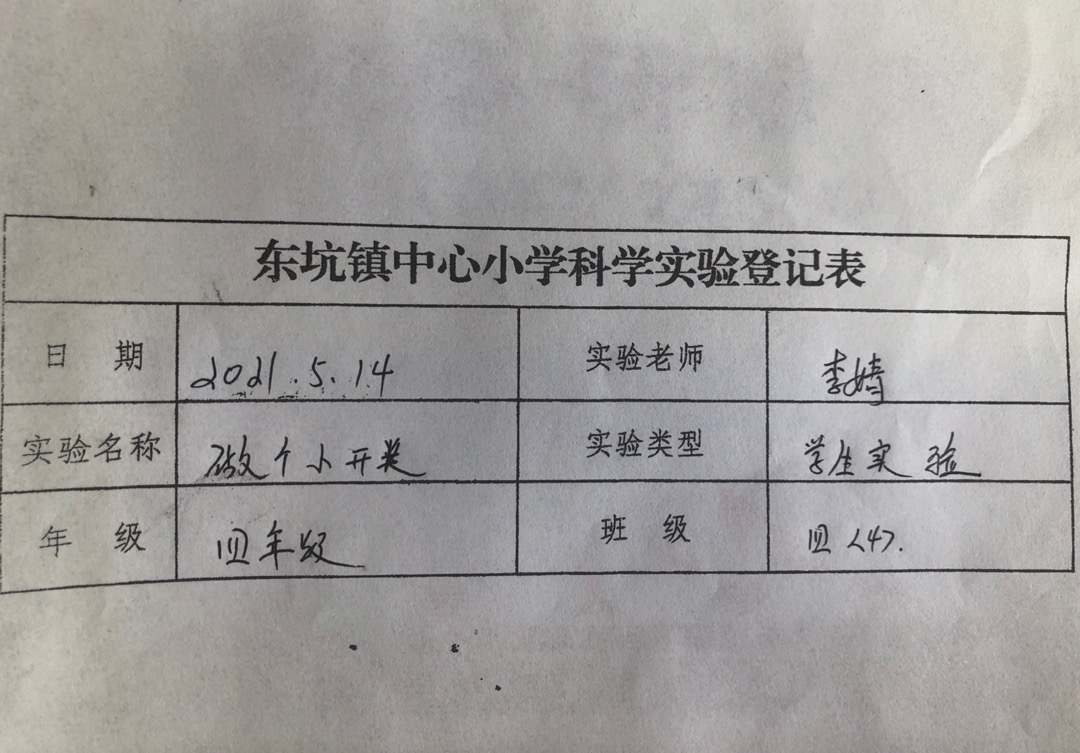 东坑镇中心小学科学实验登记表
日 期 2021.5.14 实验老师 李婧
实验名称 做个小开关 实验类型 学生实验
年 级 四年级 班 级 四〈4〉.